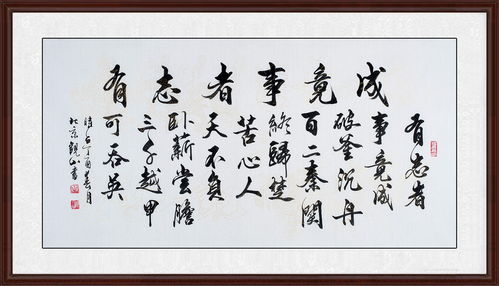 有志者事竟成
有志者
事竟成
破釜沉舟
百二秦関
終歸楚
苦心人
天不負
卧薪嘗膽
三千越甲
可吞吴
時在丁酉春月
北京觀山書